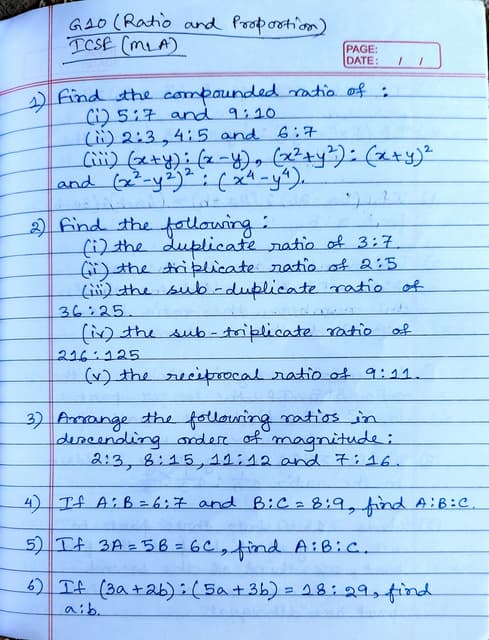 G10 (Ratio and Proportion)
ICSE (MLA)
PAGE:
DATE: / /
1) Find the compounded ratio of :
(i) 5:7 and 9:10
(ii) 2:3, 4:5 and 6:7
(iii) (x+y):(x-y), (x²+y²):(x+y)²
and (x²-y²)² : (x⁴-y⁴).
2) Find the following :
(i) the duplicate ratio of 3:7
(ii) the triplicate ratio of 2:5
(iii) the sub-duplicate ratio of
36:25.
(iv) the sub-triplicate ratio of
216:125
(v) the reciprocal ratio of 9:11.
3) Arrange the following ratios in
descending order of magnitude :
2:3, 8:15, 11:12 and 7:16.
4) If A:B=6:7 and B:C=8:9, find A:B:C.
5) If 3A=5B=6C, find A:B:C.
6) If (3a+2b):(5a+3b)=18:29, find
a:b.